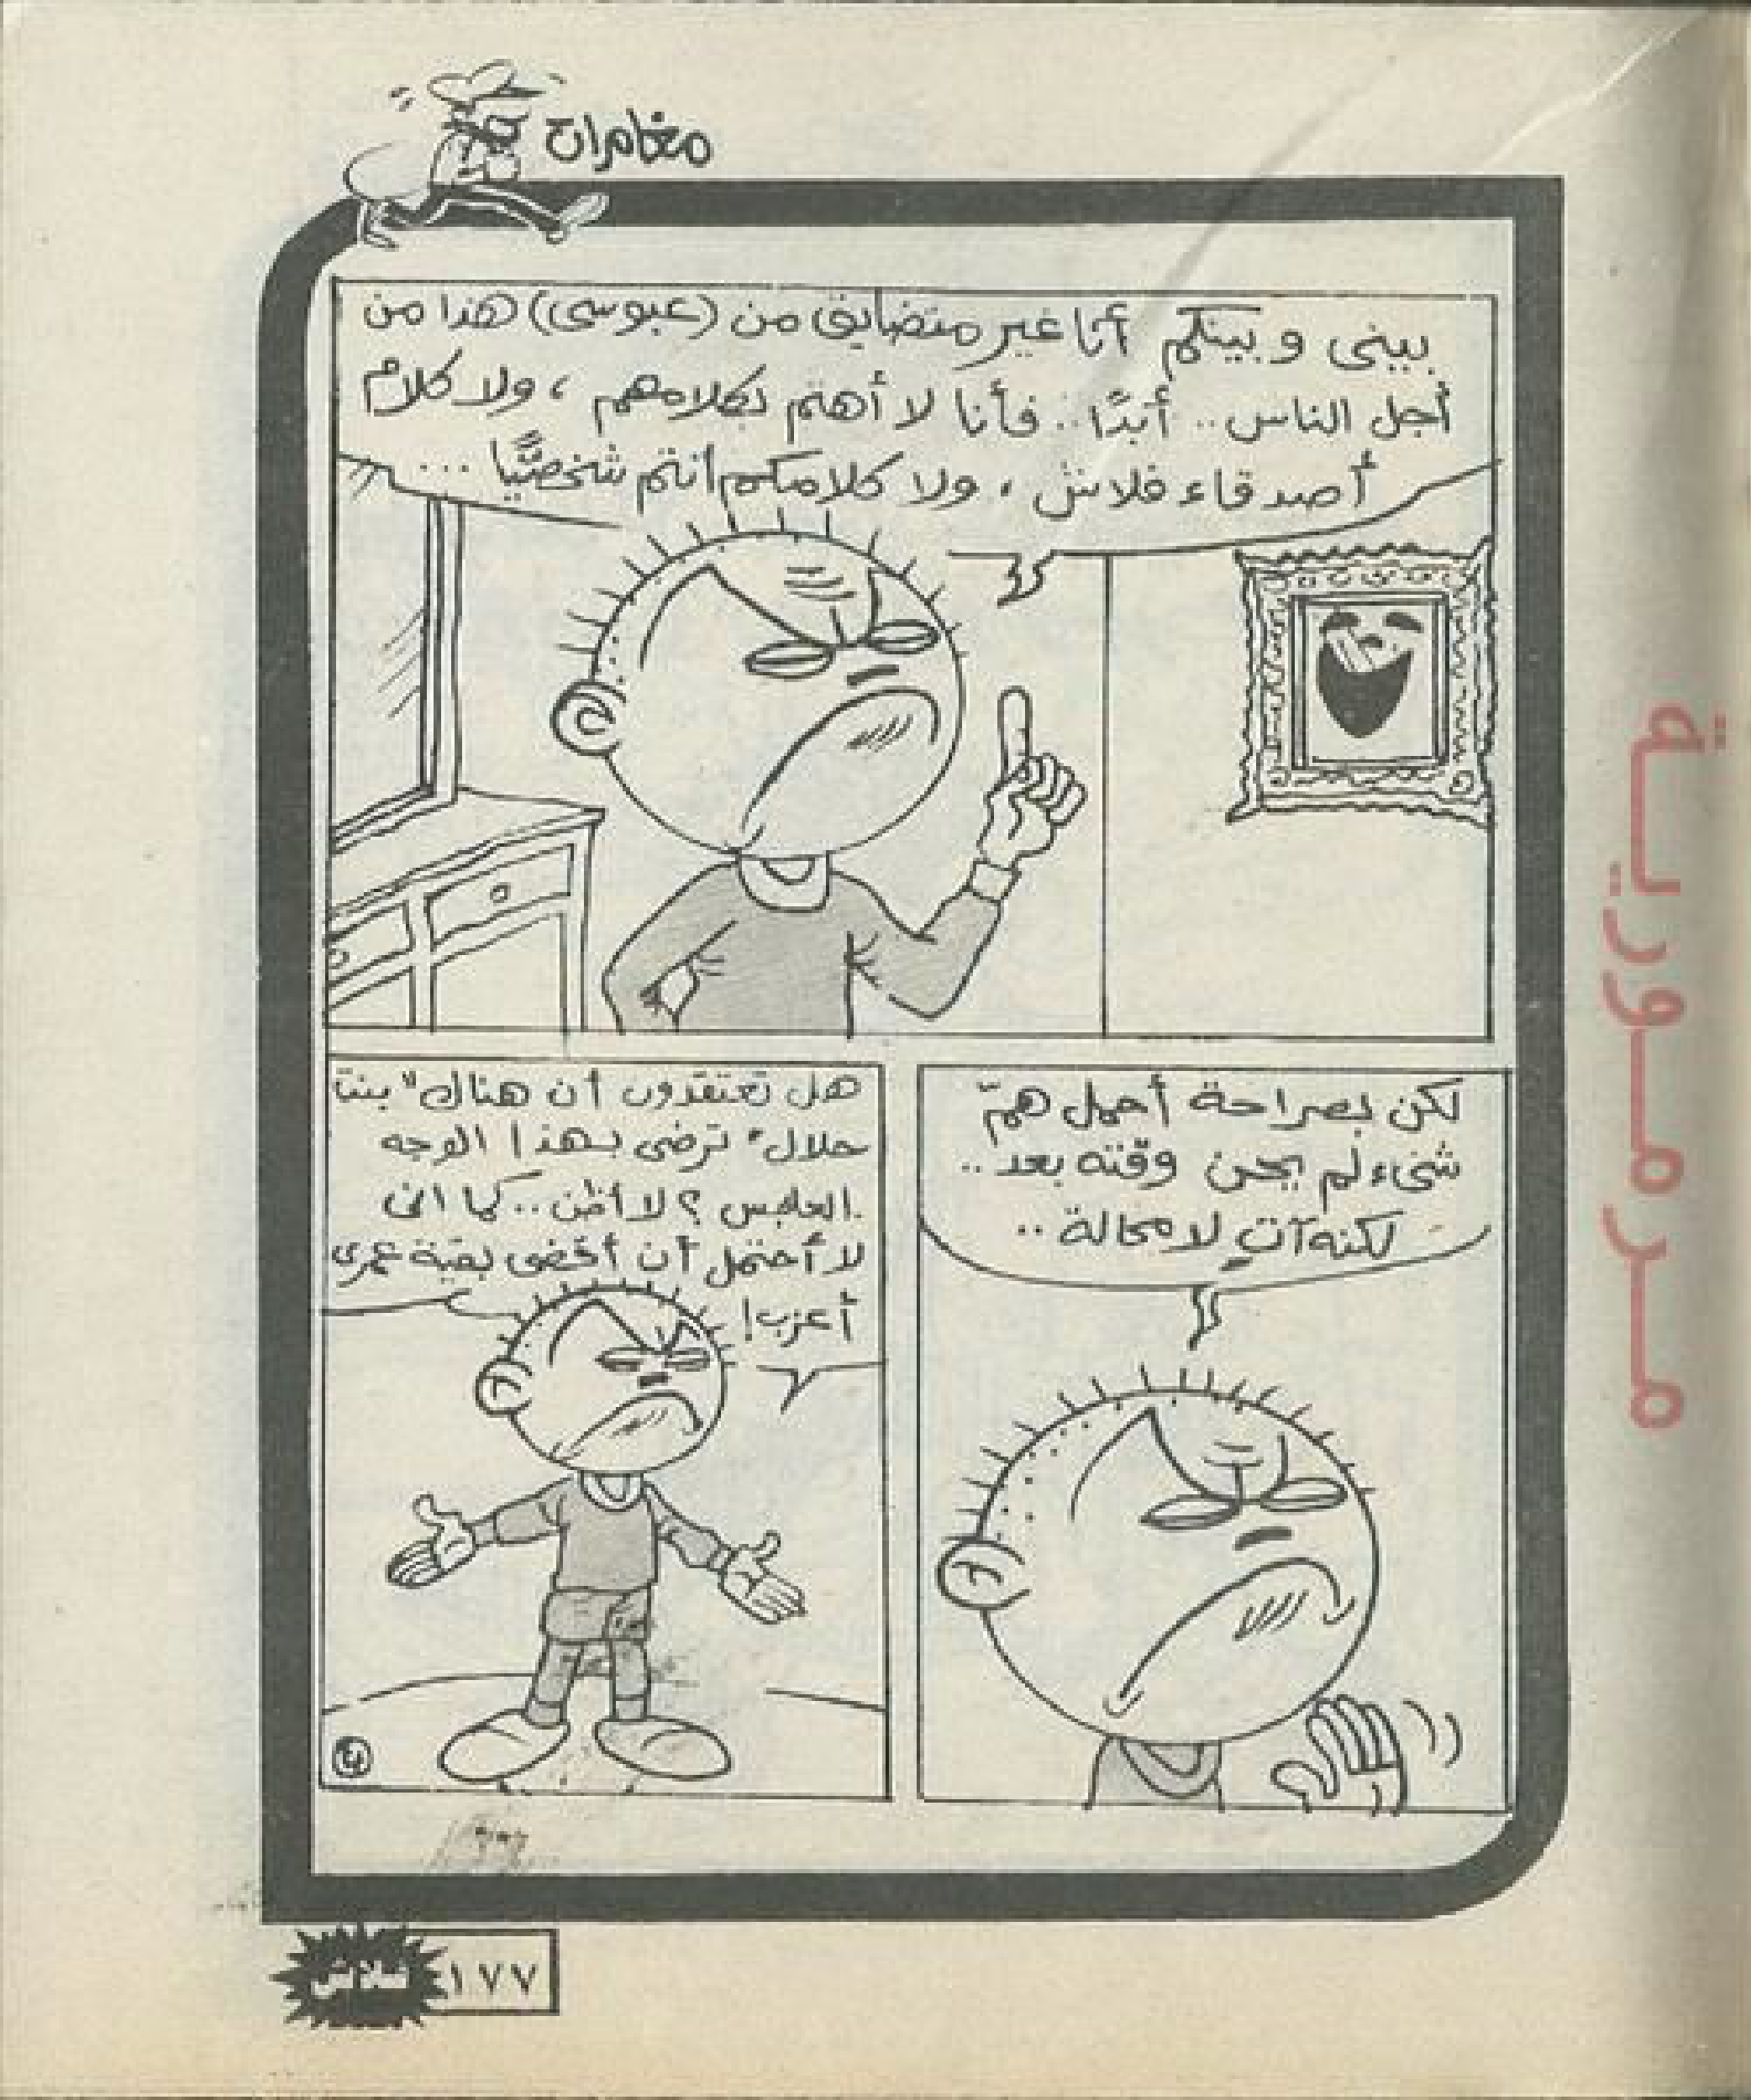 مغامرات
بينى وبينكم أنا غير متضايق من (عبوسى) هذا من
أجل الناس .. أبدًا .. فأنا لا أهتم بكلامهم ، ولا كلام
أصدقاء فلاش ، ولا كلامكم أنتم شخصيًّا ...
لكن بصراحة أحمل همّ
شىء لم يحن وقته بعد ..
لكنه آتٍ لا محالة ..
هل تعتقدون أن هناك "بنت
حلال" ترضى بهذا الوجه
العابس ؟ لا أظن .. كما انى
لا أحتمل أن أقضى بقية عمرى
أعزب !
٤
فلاش ١٧٧
مرمورية